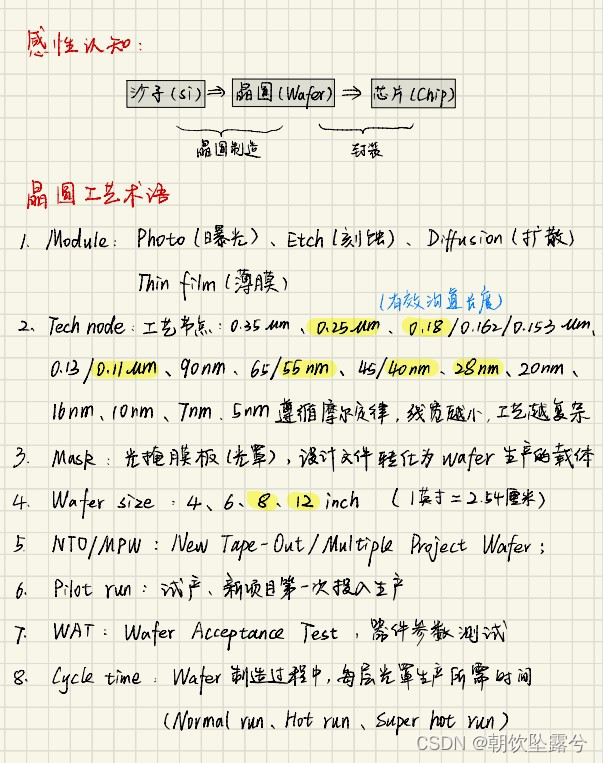 感性认知：
沙子(si) ⇒ 晶圆(Wafer) ⇒ 芯片(Chip)
晶圆制造 封装
晶圆工艺术语
1. Module：Photo(曝光)、Etch(刻蚀)、Diffusion(扩散)
Thin film(薄膜)
(有效沟道长度)
2. Tech node：工艺节点：0.35um、0.25um、0.18/0.162/0.153um、
0.13/0.11um、90nm、65/55nm、45/40nm、28nm、20nm、
16nm、10nm、7nm、5nm 遵循摩尔定律，线宽越小，工艺越复杂
3. Mask：光掩膜板(光罩)，设计文件转化为wafer生产的载体
4. Wafer size：4、6、8、12 inch (1英寸=2.54厘米)
5. NTO/MPW：New Tape-Out/Multiple Project Wafer；
6. Pilot run：试产、新项目第一次投入生产
7. WAT：Wafer Acceptance Test，器件参数测试
8. Cycle time：Wafer制造过程中，每层光罩生产所需时间
(Normal run、Hot run、Super hot run)
CSDN @朝饮坠露兮